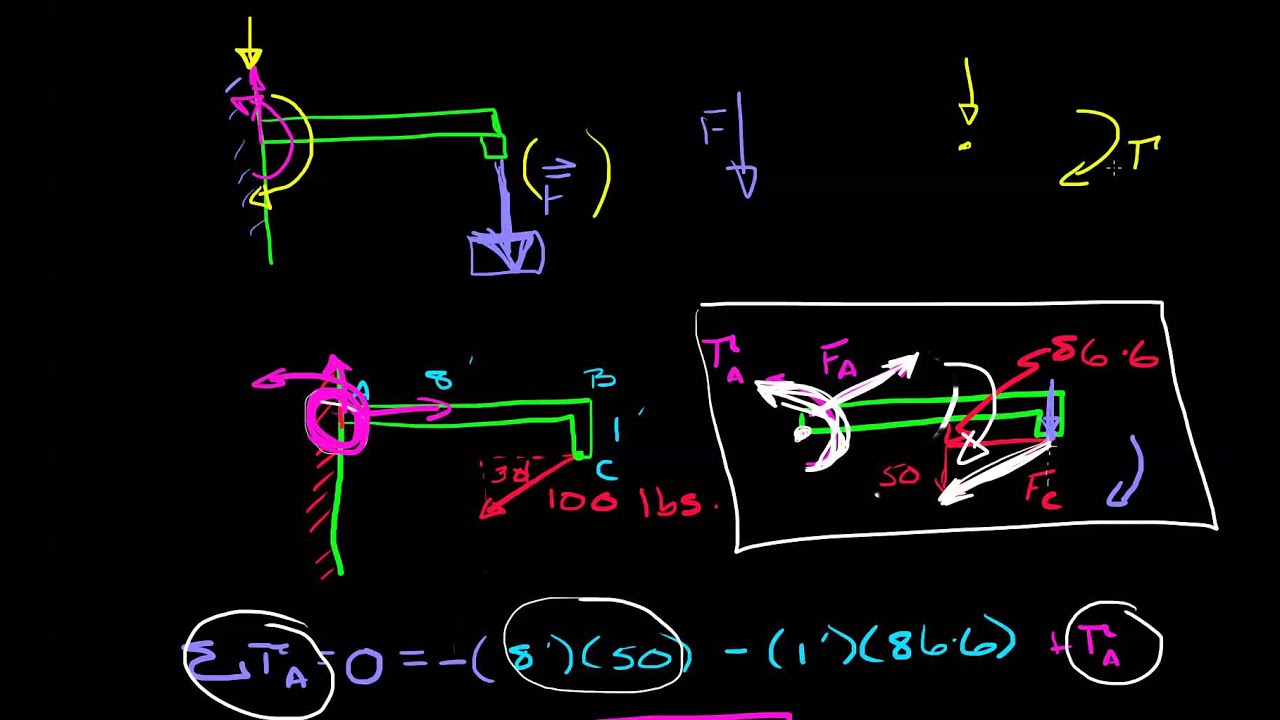 F
F
T
A 8' B
1'
C
30
100 lbs.
T_A F_A 86.6
50 F_C
ΣT_A = 0 = -(8')(50) - (1')(86.6) + T_A